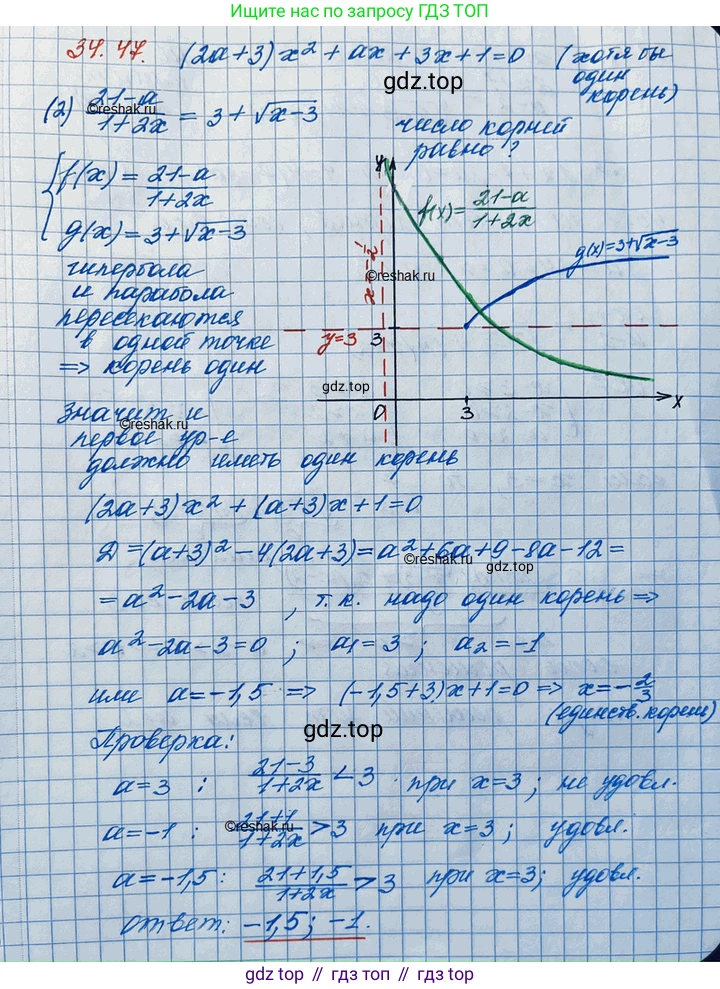 Ищите нас по запросу ГДЗ ТОП
34.47. (2a+3)x² + ax + 3x + 1 = 0 (хотя бы один корень)
gdz.top
(2) 21-a / 1+2x = 3 + √x-3
©reshak.ru
число корней равно?
{ f(x) = 21-a / 1+2x
g(x) = 3+√x-3
гипербола
и парабола
пересекаются
в одной точке
=> корень один
y
f(x) = 21-a / 1+2x
g(x)=3+√x-3
x = -1/2
©reshak.ru
y=3
3
gdz.top
0
3
x
Значит и
©reshak.ru
первое ур-е
должно иметь один корень
(2a+3)x² + (a+3)x + 1 = 0
Д = (a+3)² - 4(2a+3) = a² + 6a + 9 - 8a - 12 =
©reshak.ru
gdz.top
= a² - 2a - 3 , т.к. надо один корень =>
a² - 2a - 3 = 0 ; a1 = 3 ; a2 = -1
или a = -1,5 => (-1,5+3)x + 1 = 0 => x = -2/3
(единств. корень)
gdz.top
Проверка:
a = 3 : 21-3 / 1+2x < 3 при x=3 ; не удовл.
a = -1 : 21+1 / 1+2x > 3 при x=3 ; удовл.
©reshak.ru
a = -1,5 : 21+1,5 / 1+2x > 3 при x=3; удовл.
ответ: -1,5 ; -1.
gdz.top // гдз топ // gdz.top // гдз топ